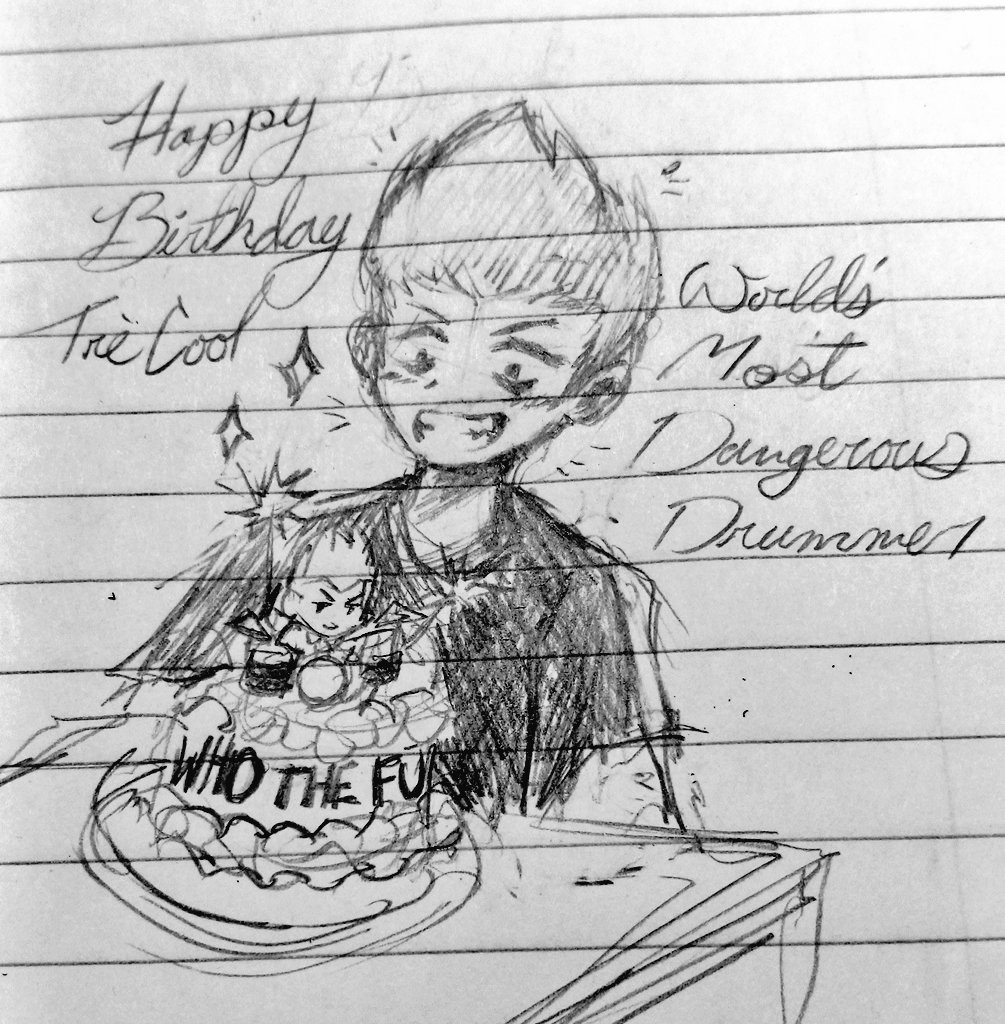 Happy
Birthday
Trè Cool
World's
Most
Dangerous
Drummer
WHO THE FU